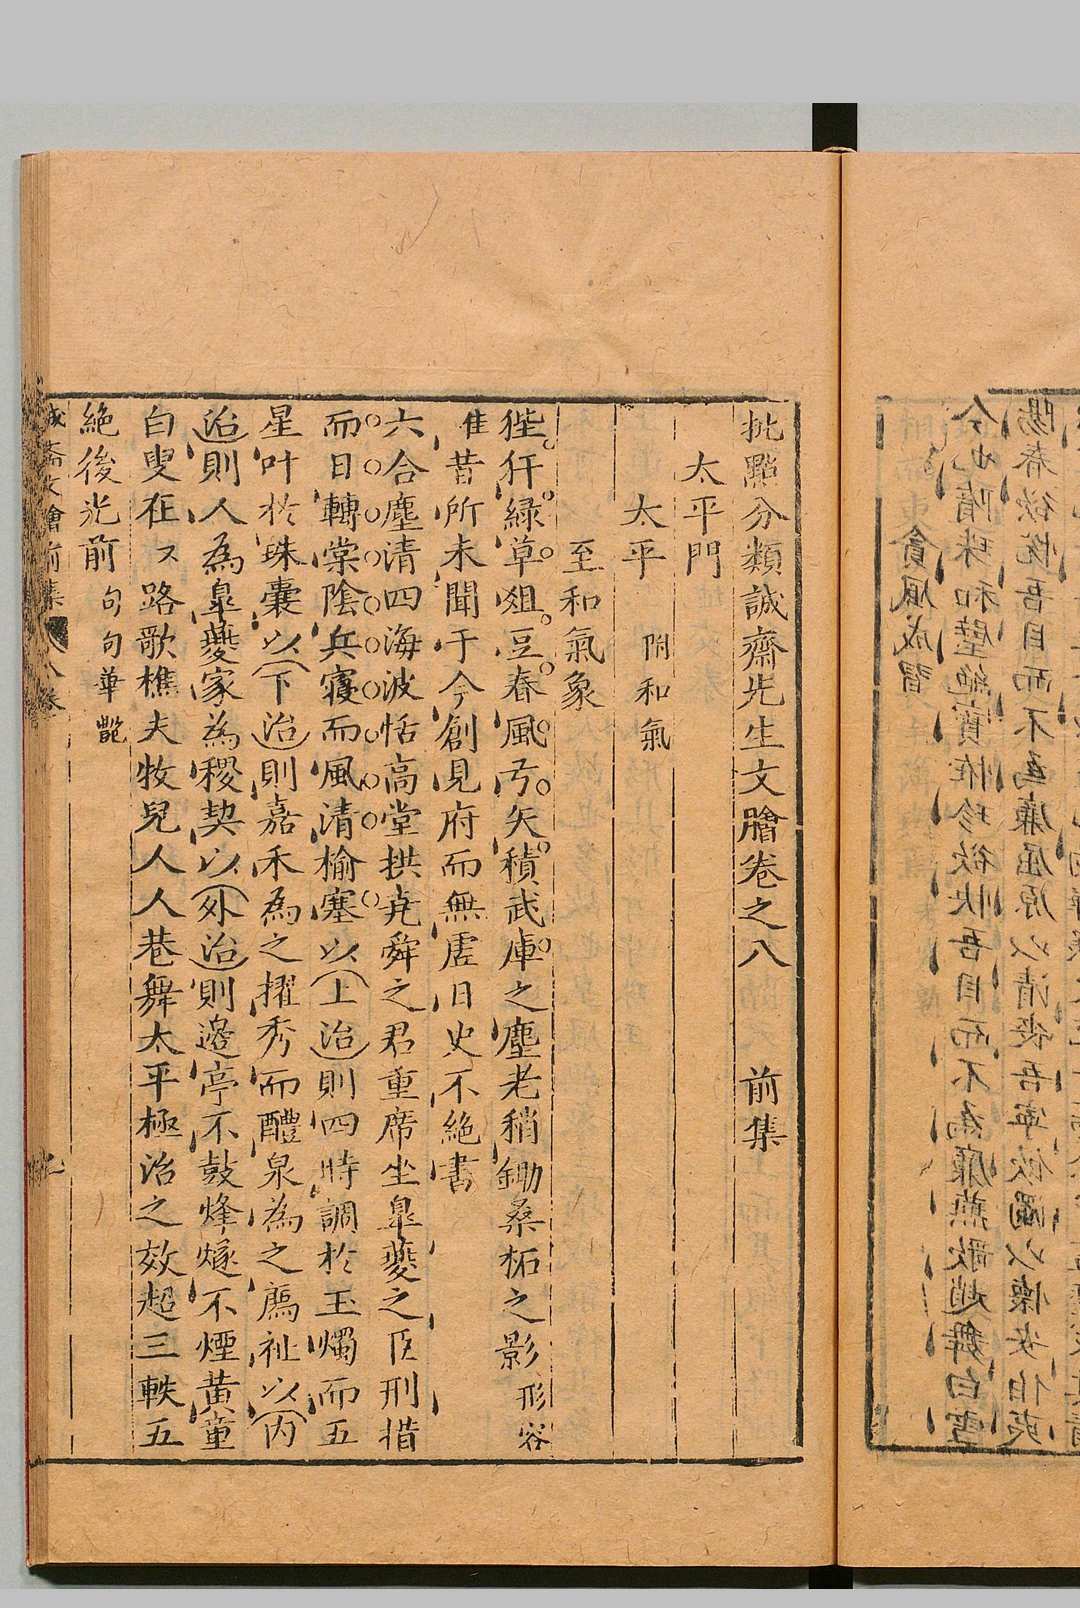 貪風成習
今也隋珠和璧絕寶恠珍欲快吾目而不為廉燕歌趙舞白雪
批點分類誠齋先生文膾卷之八　前集
太平門
太平　附和氣
至和氣象
狴犴綠草俎豆春風弓矢積武庫之塵耒耜鋤桑柘之影　形容
佳　昔所未聞于今創見府而無虛日史不絕書
六合塵清四海波恬高堂拱堯舜之君重席坐皐夔之臣刑措
而日轉棠陰兵寢而風清榆塞以上治則四時調於玉燭而五
星叶於珠囊以下治則嘉禾為之擢秀而醴泉為之薦祉以內
治則人為皐夔家為稷契以外治則邊亭不鼓烽燧不煙黃童
白叟在々路歌樵夫牧兒人人巷舞太平極治之效超三軼五
絕後光前　句句華艷
誠齋文膾前集　八卷